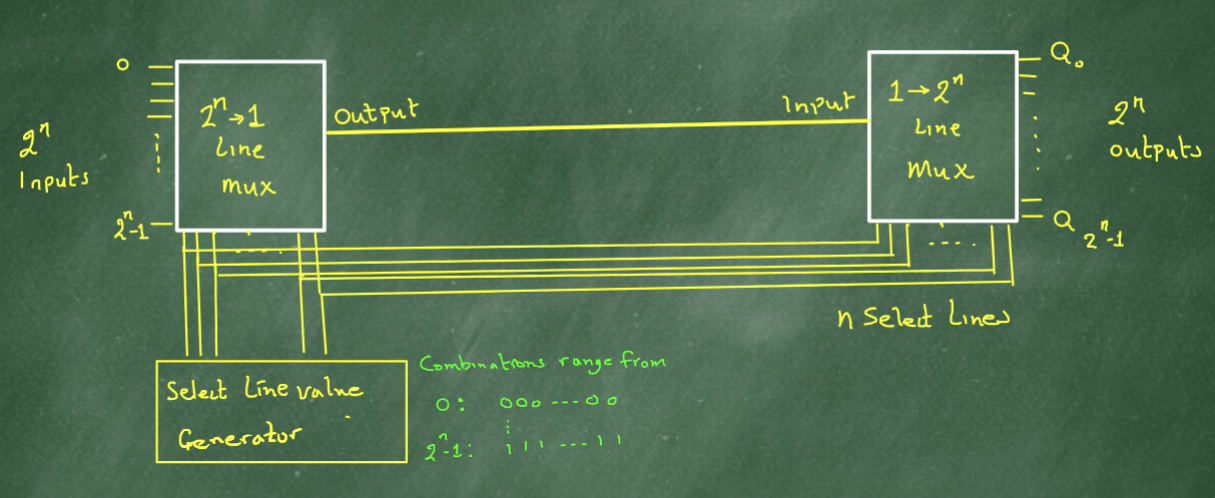 0
2ⁿ
Inputs
2ⁿ-1
2ⁿ→1
Line
mux
Output
Input
1→2ⁿ
Line
Mux
Q₀
2ⁿ
outputs
Q 2ⁿ-1
n Select Lines
Select Line value
Generator
Combinations range from
0: 000 --- 00
2ⁿ-1: 111 --- 11